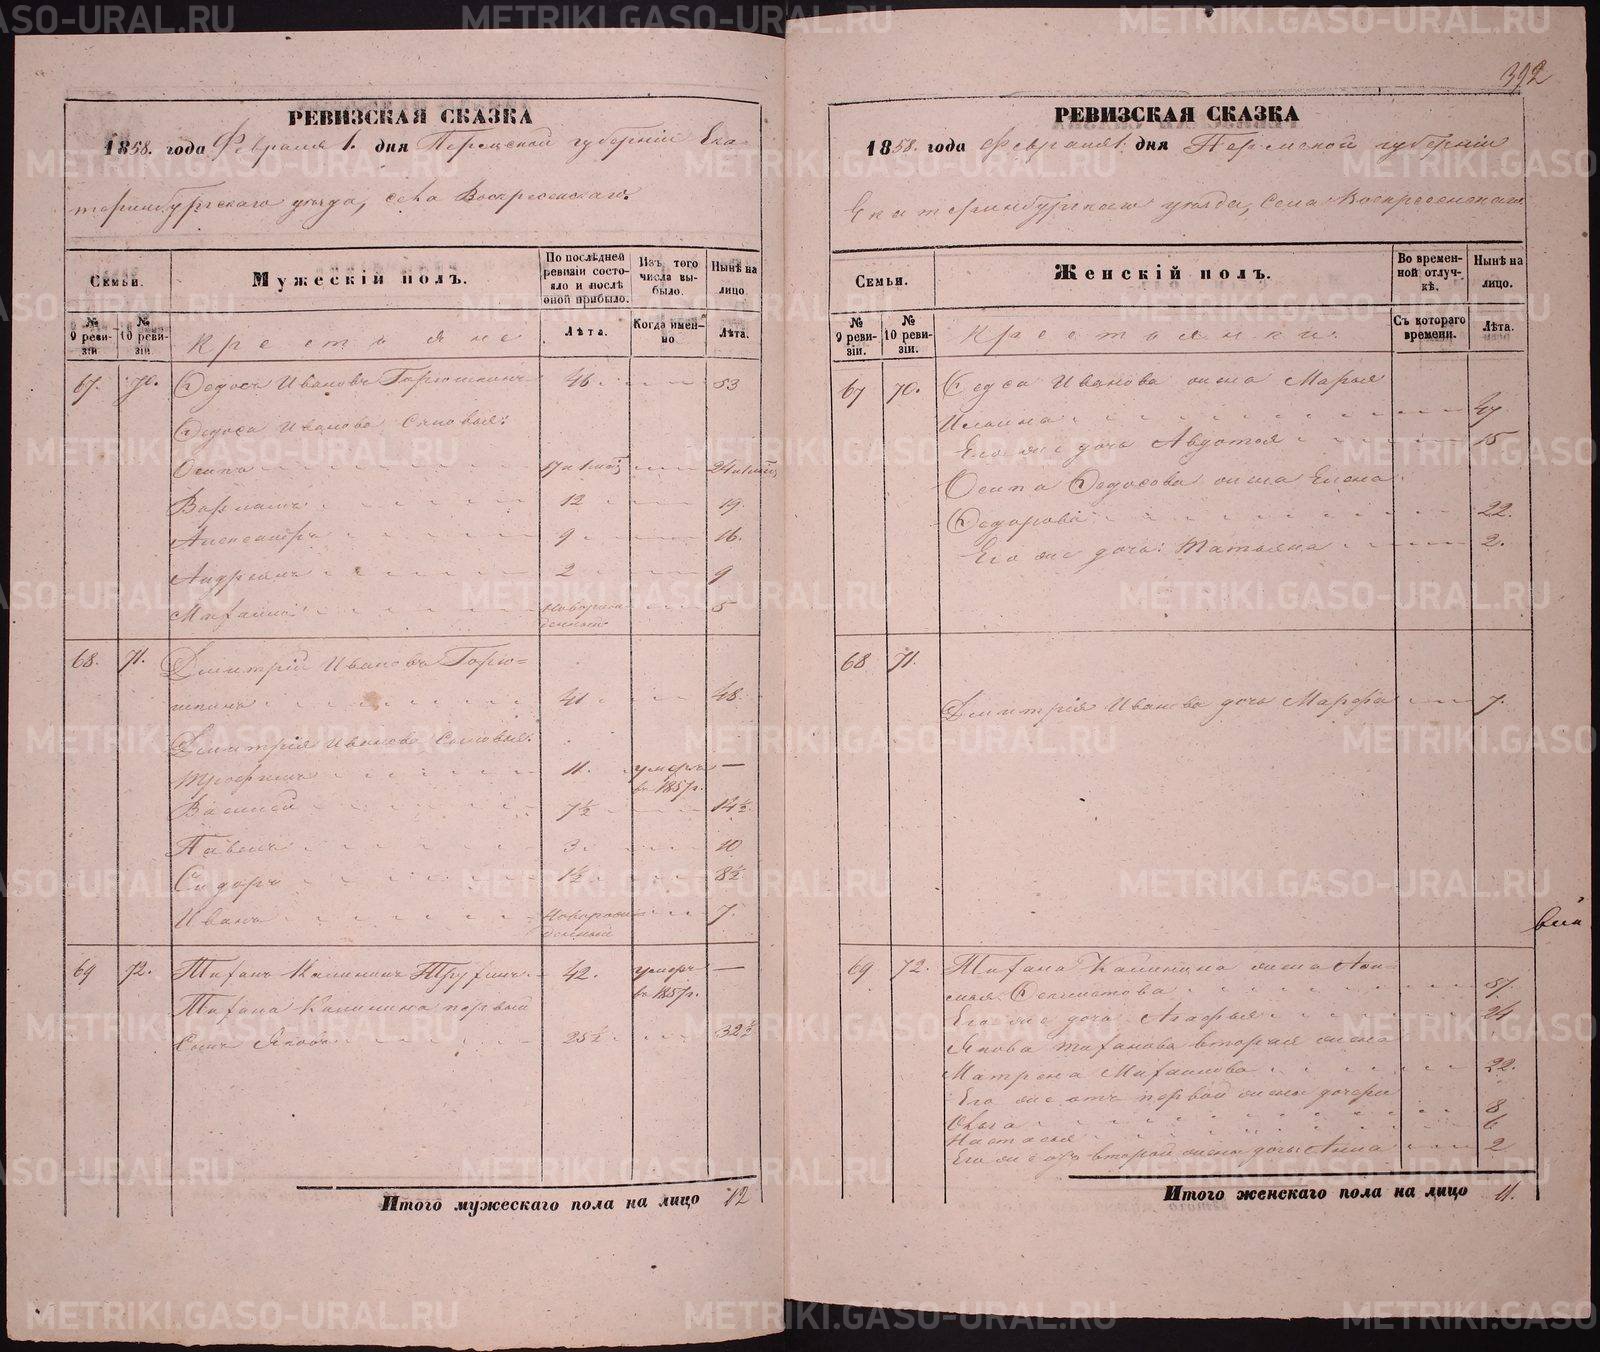 РЕВИЗСКАЯ СКАЗКА
1858. года Февраля 1. дня Пермской губерніи Ека-
теринбургскаго уѣзда, села Воскресенскаго.
Семьи.
Мужескій полъ.
По послѣдней ревизіи состояло и послѣ оной прибыло.
Изъ того числа выбыло.
Нынѣ на лицо.
№ 9 ревизіи
№ 10 ревизіи.
Крестьяне
Лѣта.
Когда именно
Лѣта.
67. 70. Ѳедосъ Ивановъ Горюшкинъ 46 53
Ѳедоса Иванова сыновья:
Осипъ 17 и 1 мѣс 24 и 1 мѣс
Варламъ 12 19.
Александръ 9 16.
Андреянъ 2 9
Михайло новорож- 5
денный
68. 71. Дмитрій Ивановъ Горю=
шкинъ 41 48.
Дмитрія Иванова сыновья:
Трофимъ 11. умеръ —
въ 1857 г.
Василій 7½ 14½
Павелъ 3 10
Сидоръ 1½ 8½
Иванъ Новорож- 7.
денный
69 72. Тиханъ Калининъ 42. умеръ —
въ 1857 г.
Тихана Калинина первый
сынъ Яковъ 25½ 32½
Итого мужескаго пола на лицо 12
392
РЕВИЗСКАЯ СКАЗКА
1858. года Февраля 1. дня Пермской губерніи
Екатеринбургскаго уѣзда, села Воскресенскаго
Семьи.
Женскій полъ.
Во временной отлучкѣ.
Нынѣ на лицо.
№ 9 ревизіи.
№ 10 ревизіи.
Крестьянки
Съ котораго времени.
Лѣта.
67 70. Ѳедоса Иванова жена Марья
47
Его же дочь Авдотья 15
Осипа Ѳедосова жена Елена
Ѳедорова 22.
Его же дочь: Татьяна 2.
68 71.
Дмитрія Иванова дочь Марфа 7.
69 72. Тихана Калинина жена
57.
Его же дочь Агафья 24
Якова Тиханова вторая жена
Матрена Михайлова 22.
Его же отъ первой жены дочери
Ольга 8
Настасья 6
Его же отъ второй жены дочь Анна 2
Итого женскаго пола на лицо 11.
METRIKI.GASO-URAL.RU